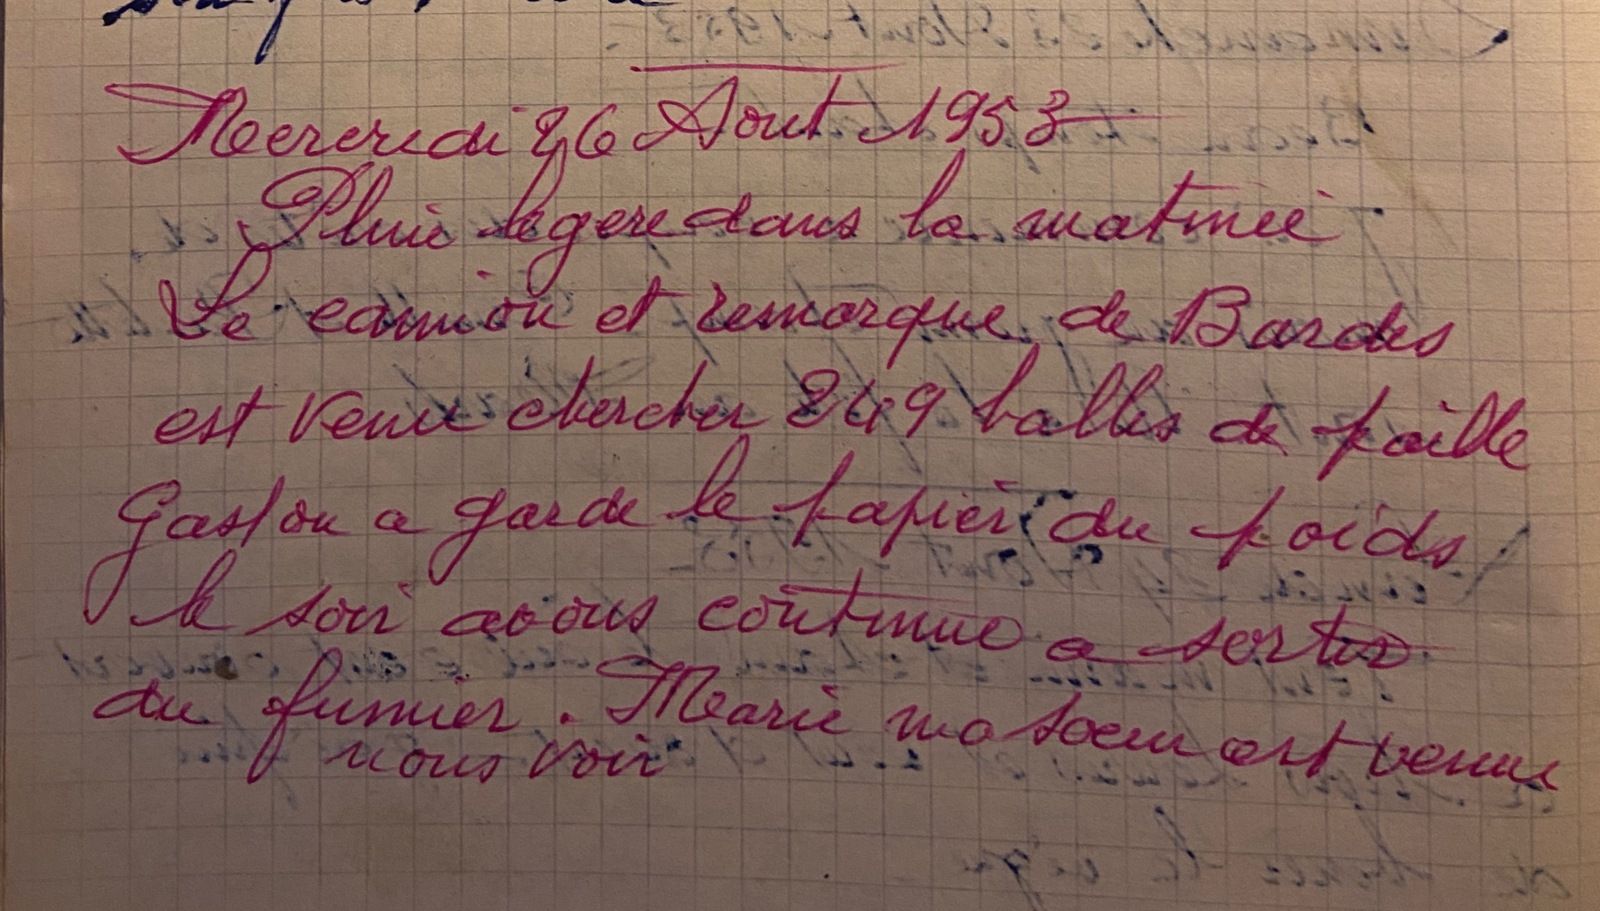 Mercredi 26 Aout 1953
Pluie legere dans la matinée
Le camion et remorque de Bardes
est venu chercher 249 balles de paille
Gaston a garde le papier du poids
le soir avons continue a sortir
du fumier. Marie ma soeur est venue
nous voir